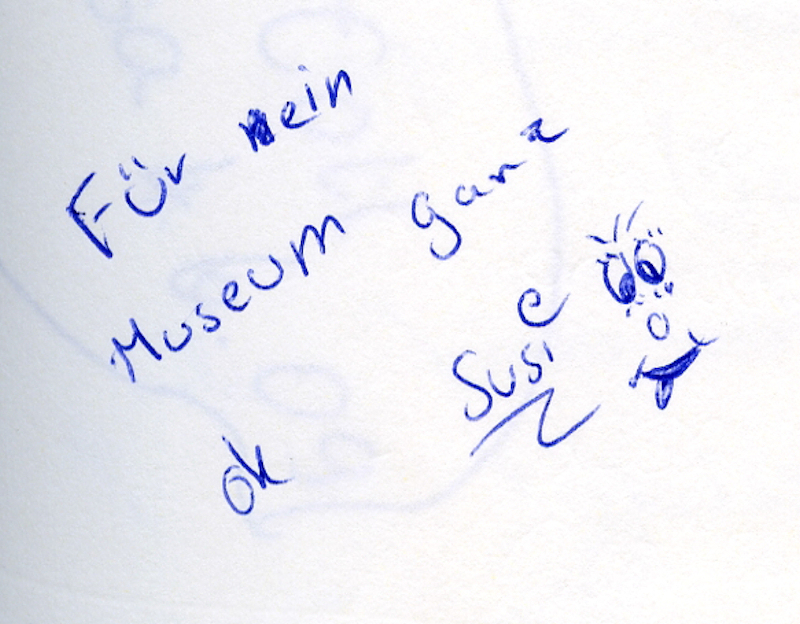 Für ein
Museum ganz
ok Susie